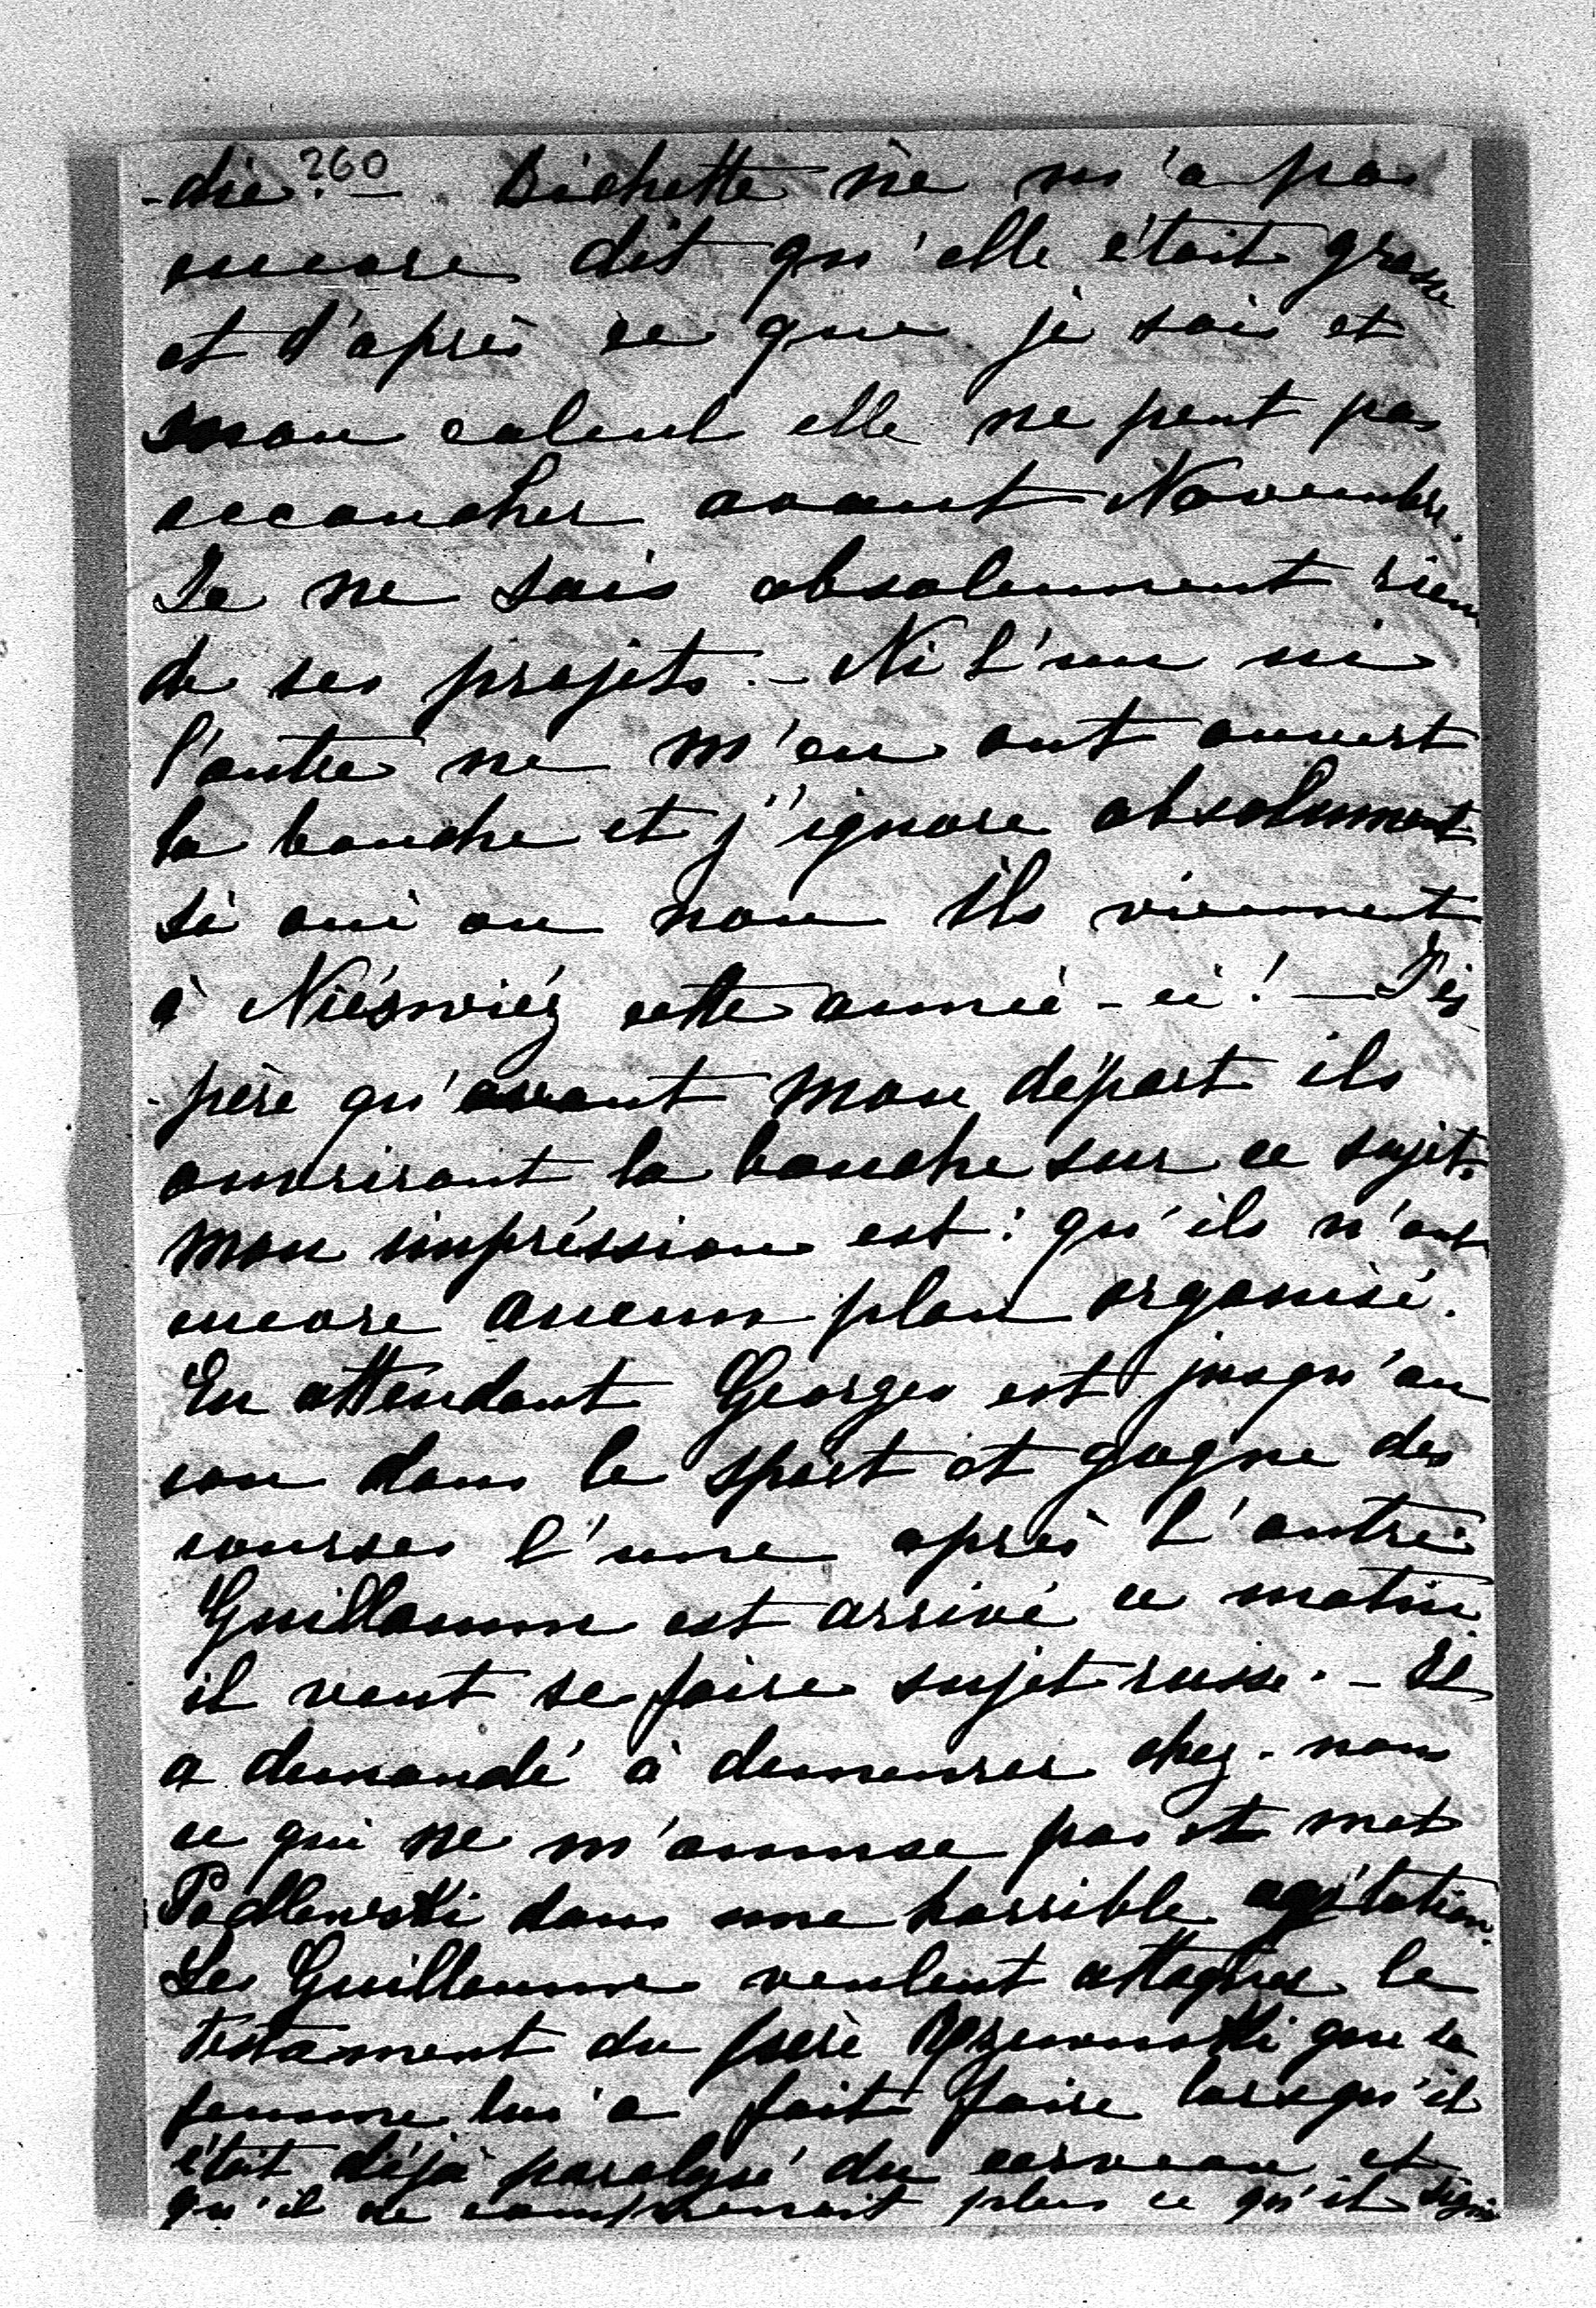 260
-die. — Bichette ne m'a pas
encore dit qu'elle était grosse
et d'après ce que je sais et
mon calcul elle ne peut pas
accoucher avant Novembre.
Je ne sais absolument rien
de ses projets. — Ni l'un ni
l'autre ne m'en ont ouvert
la bouche et j'ignore absolument
si oui ou non ils viennent
à Niéswiéz cette année-ci! — J'es
-père qu'avant mon départ ils
ouvriront la bouche sur ce sujet.
Mon impréssion est: qu'ils n'ont
encore aucun plan organisé.
En attendant Georges est jusqu'au
cou dans le sport et gagne des
courses l'une après l'autre.
Guillaume est arrivé ce matin.
il veut se faire sujet russe. — Il
a demandé à demeurer chez-nous
ce qui ne m'amuse pas et met
Podlewski dans une horrible agitation.
Les Guillaume veulent attaquer le
testament du père Rzewuski que sa
femme lui a fait faire lorsqu'il
était déjà paralysé du cerveau et
qu'il ne comprenait plus ce qu'il